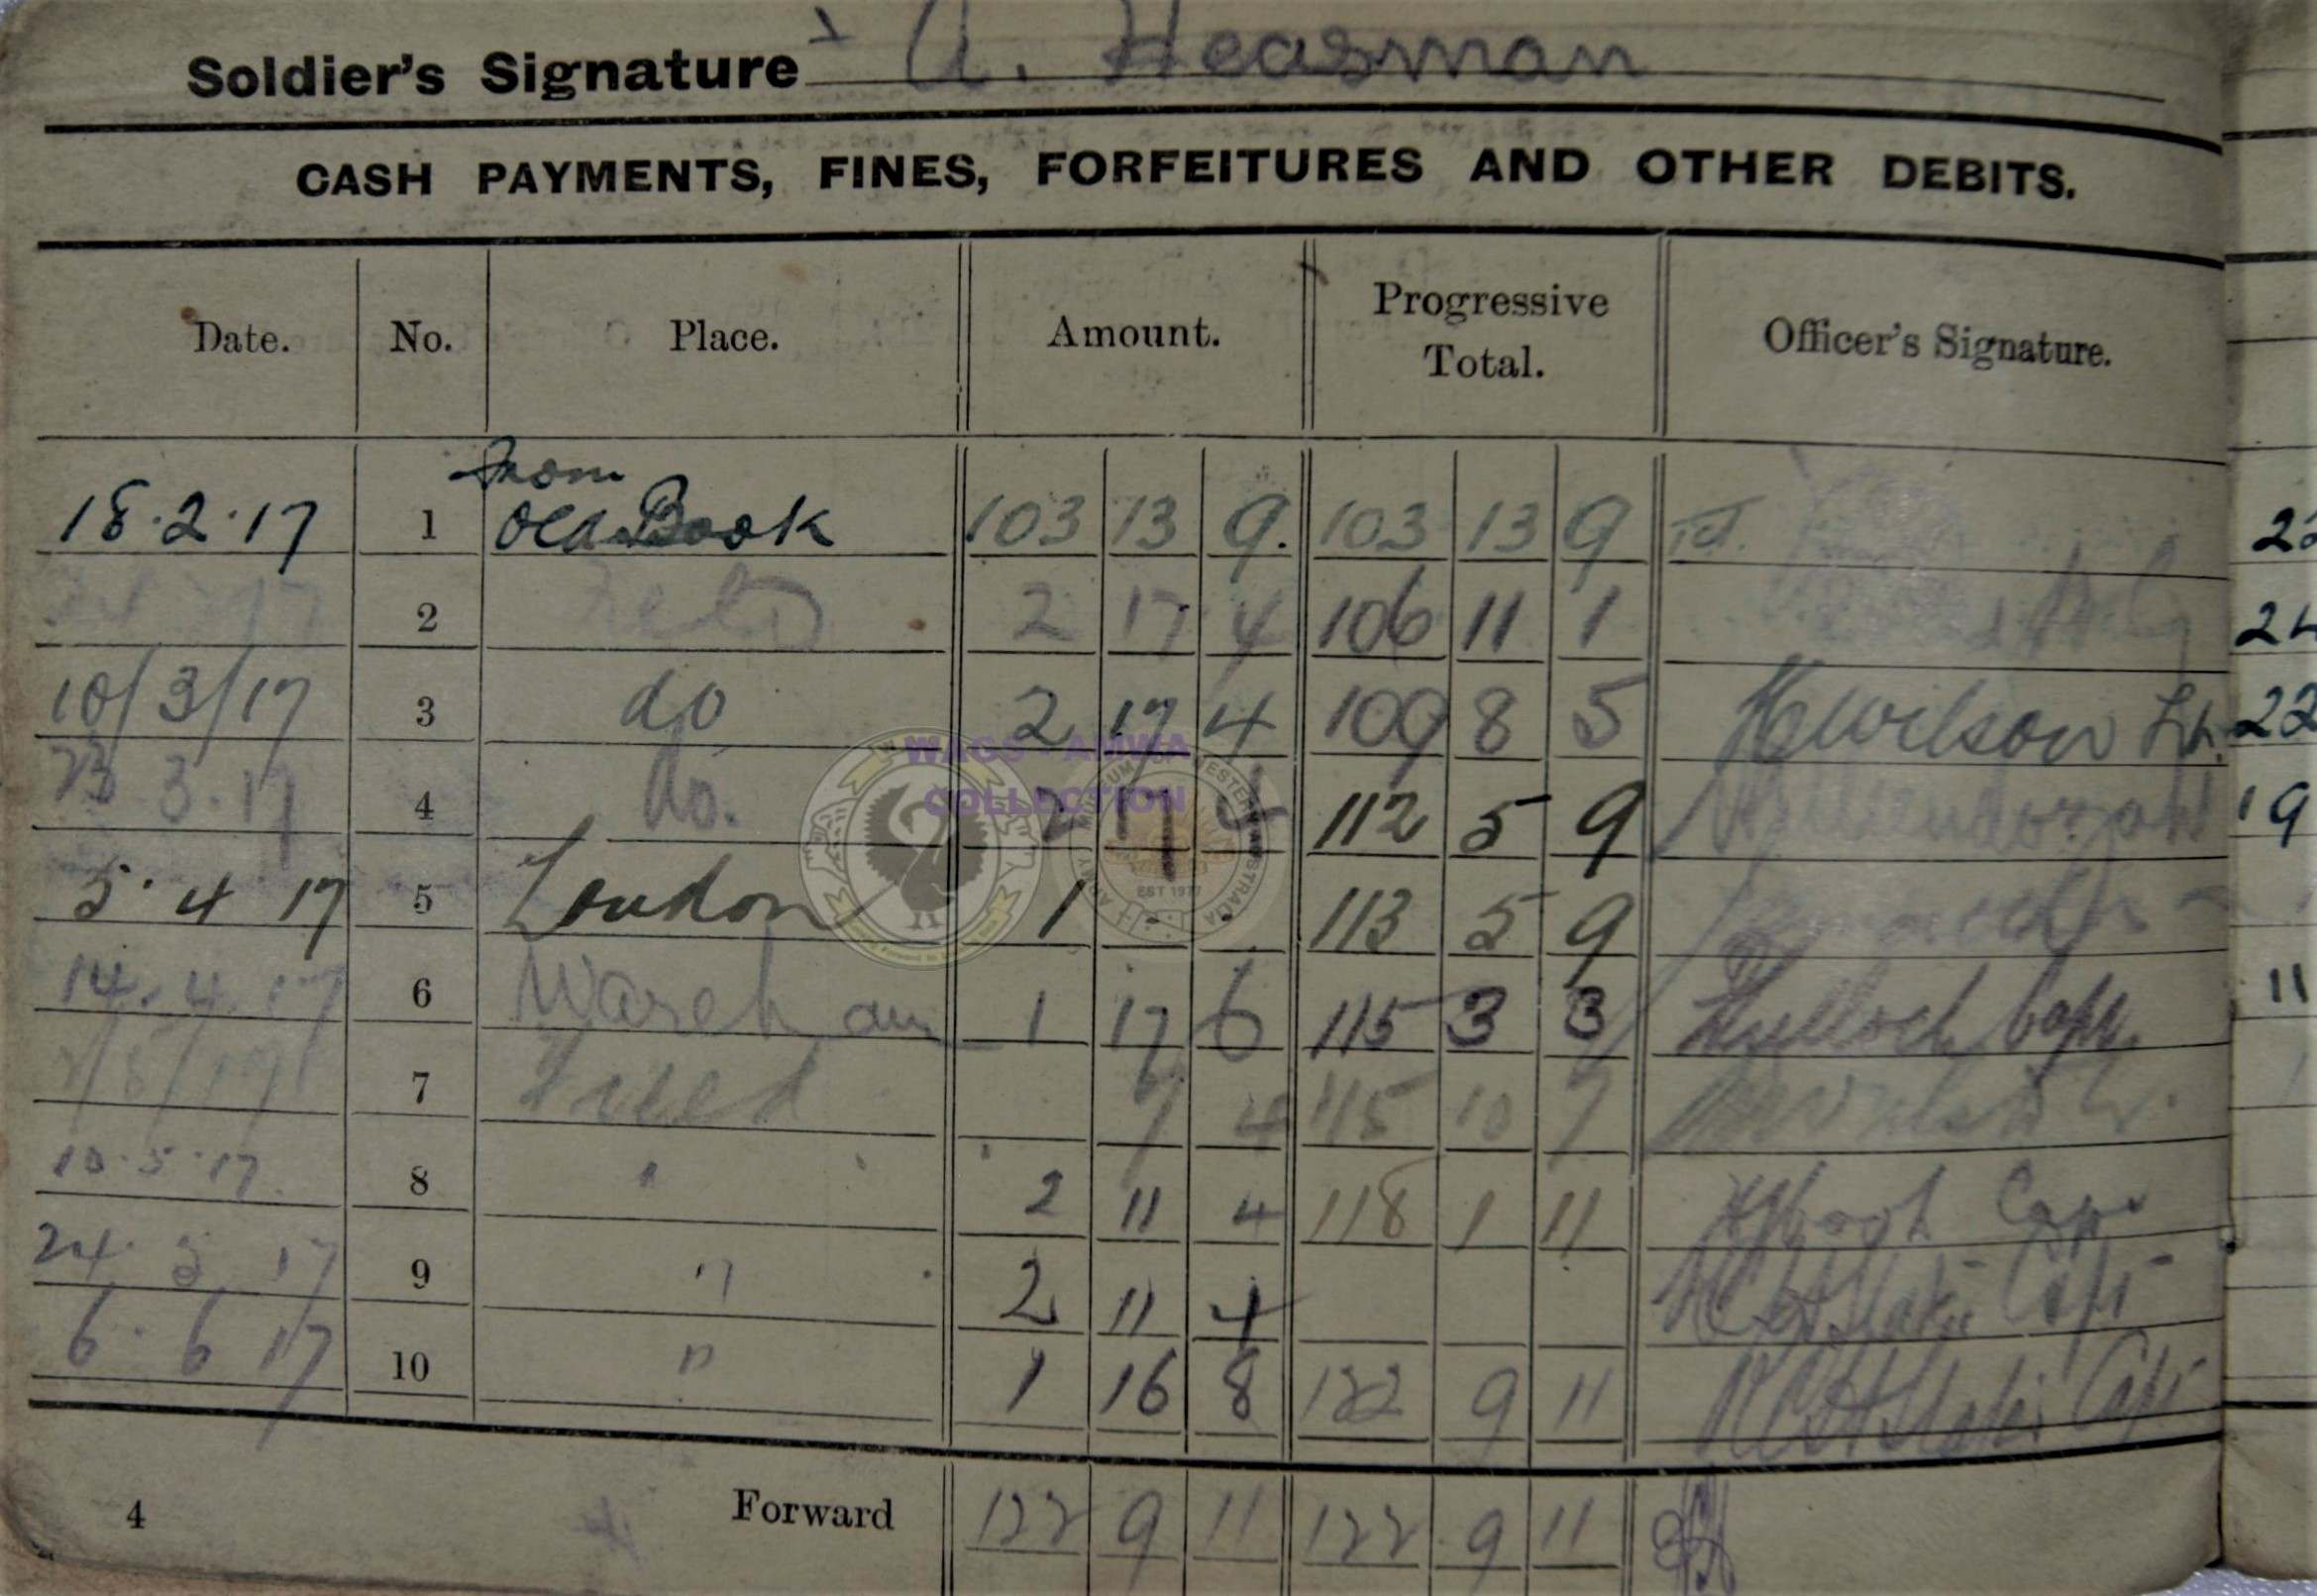 Soldier's Signature x A. Heasman
CASH PAYMENTS, FINES, FORFEITURES AND OTHER DEBITS.
Date. No. Place. Amount. Progressive Total. Officer's Signature.
From
18.2.17 1 Old Book 103 13 9. 103 13 9
2 Field 2 17 4 106 11 1
10/3/17 3 do 2 17 4 109 8 5 Wilson Lt. 22
23.3.17 4 do. 2 17 4 112 5 9 19
5.4 17 5 London 1 - - 113 5 9
14.4.17 6 Wareham 1 17 6 115 3 3 Capt. 11
7 Field 7 4 115 10 7
10.5.17 8 " 2 11 4 118 1 11 Capt
24.5.17 9 " 2 11 4 Capt
6.6 17 10 " 1 16 8 122 9 11 Capt
4 Forward 122 9 11 122 9 11
WAGS AMWA
COLLECTION
EST 1977